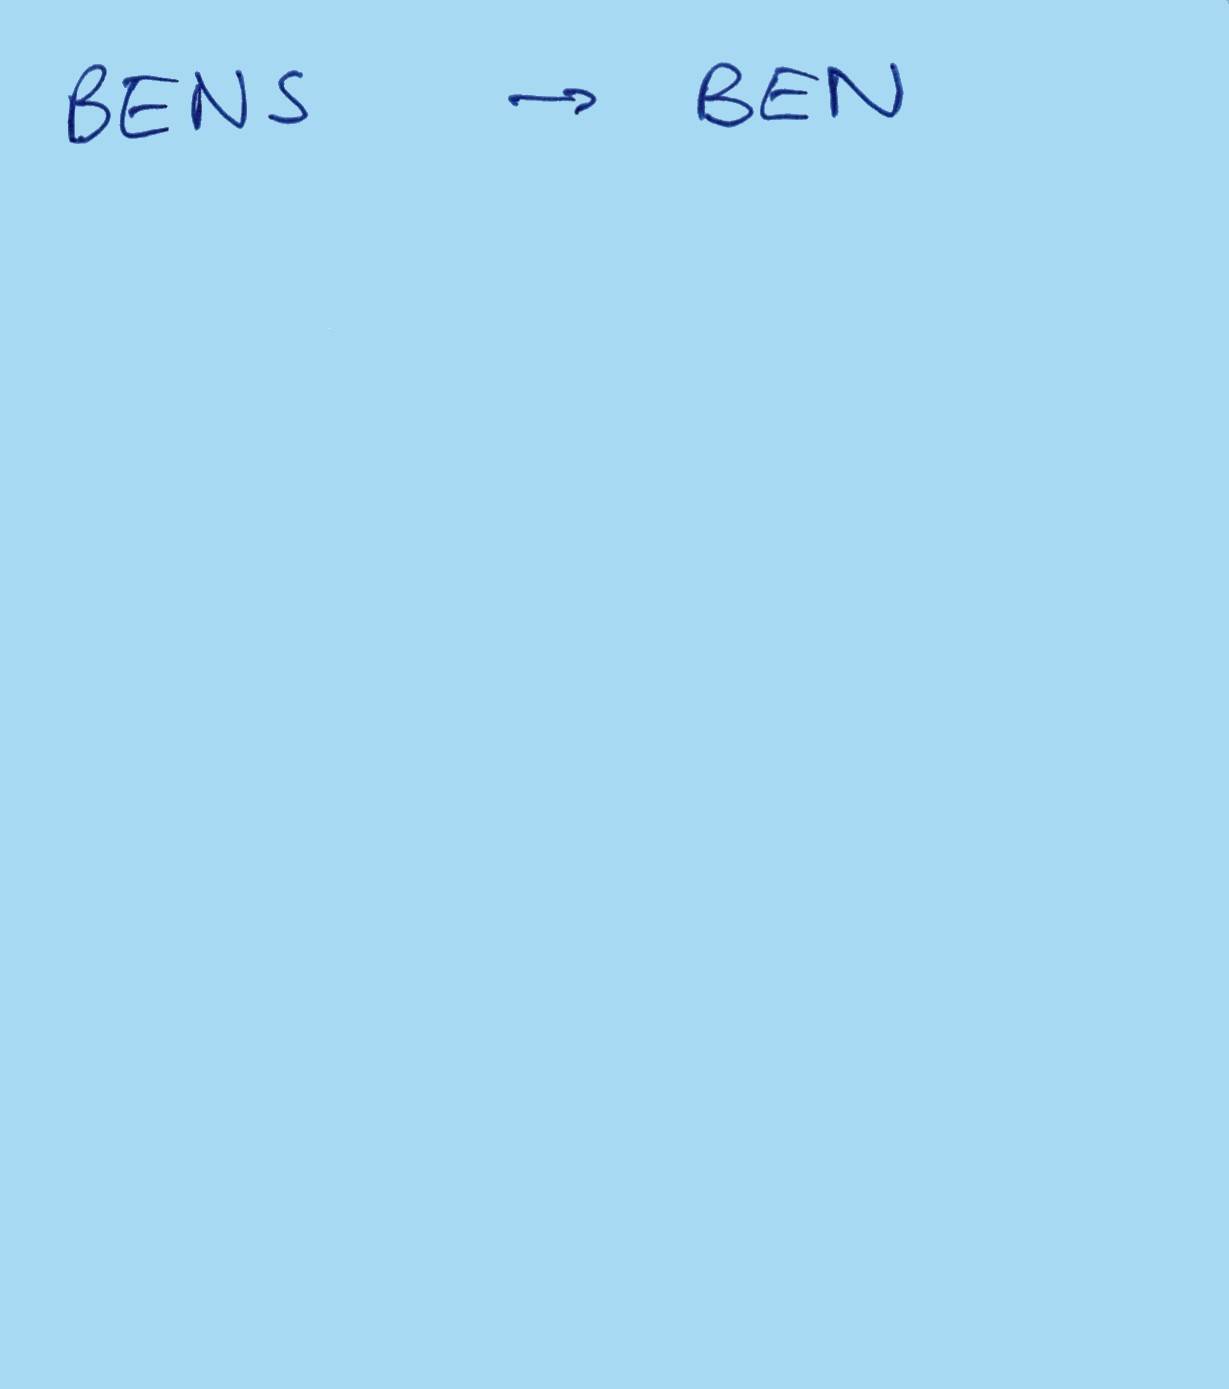 BENS → BEN